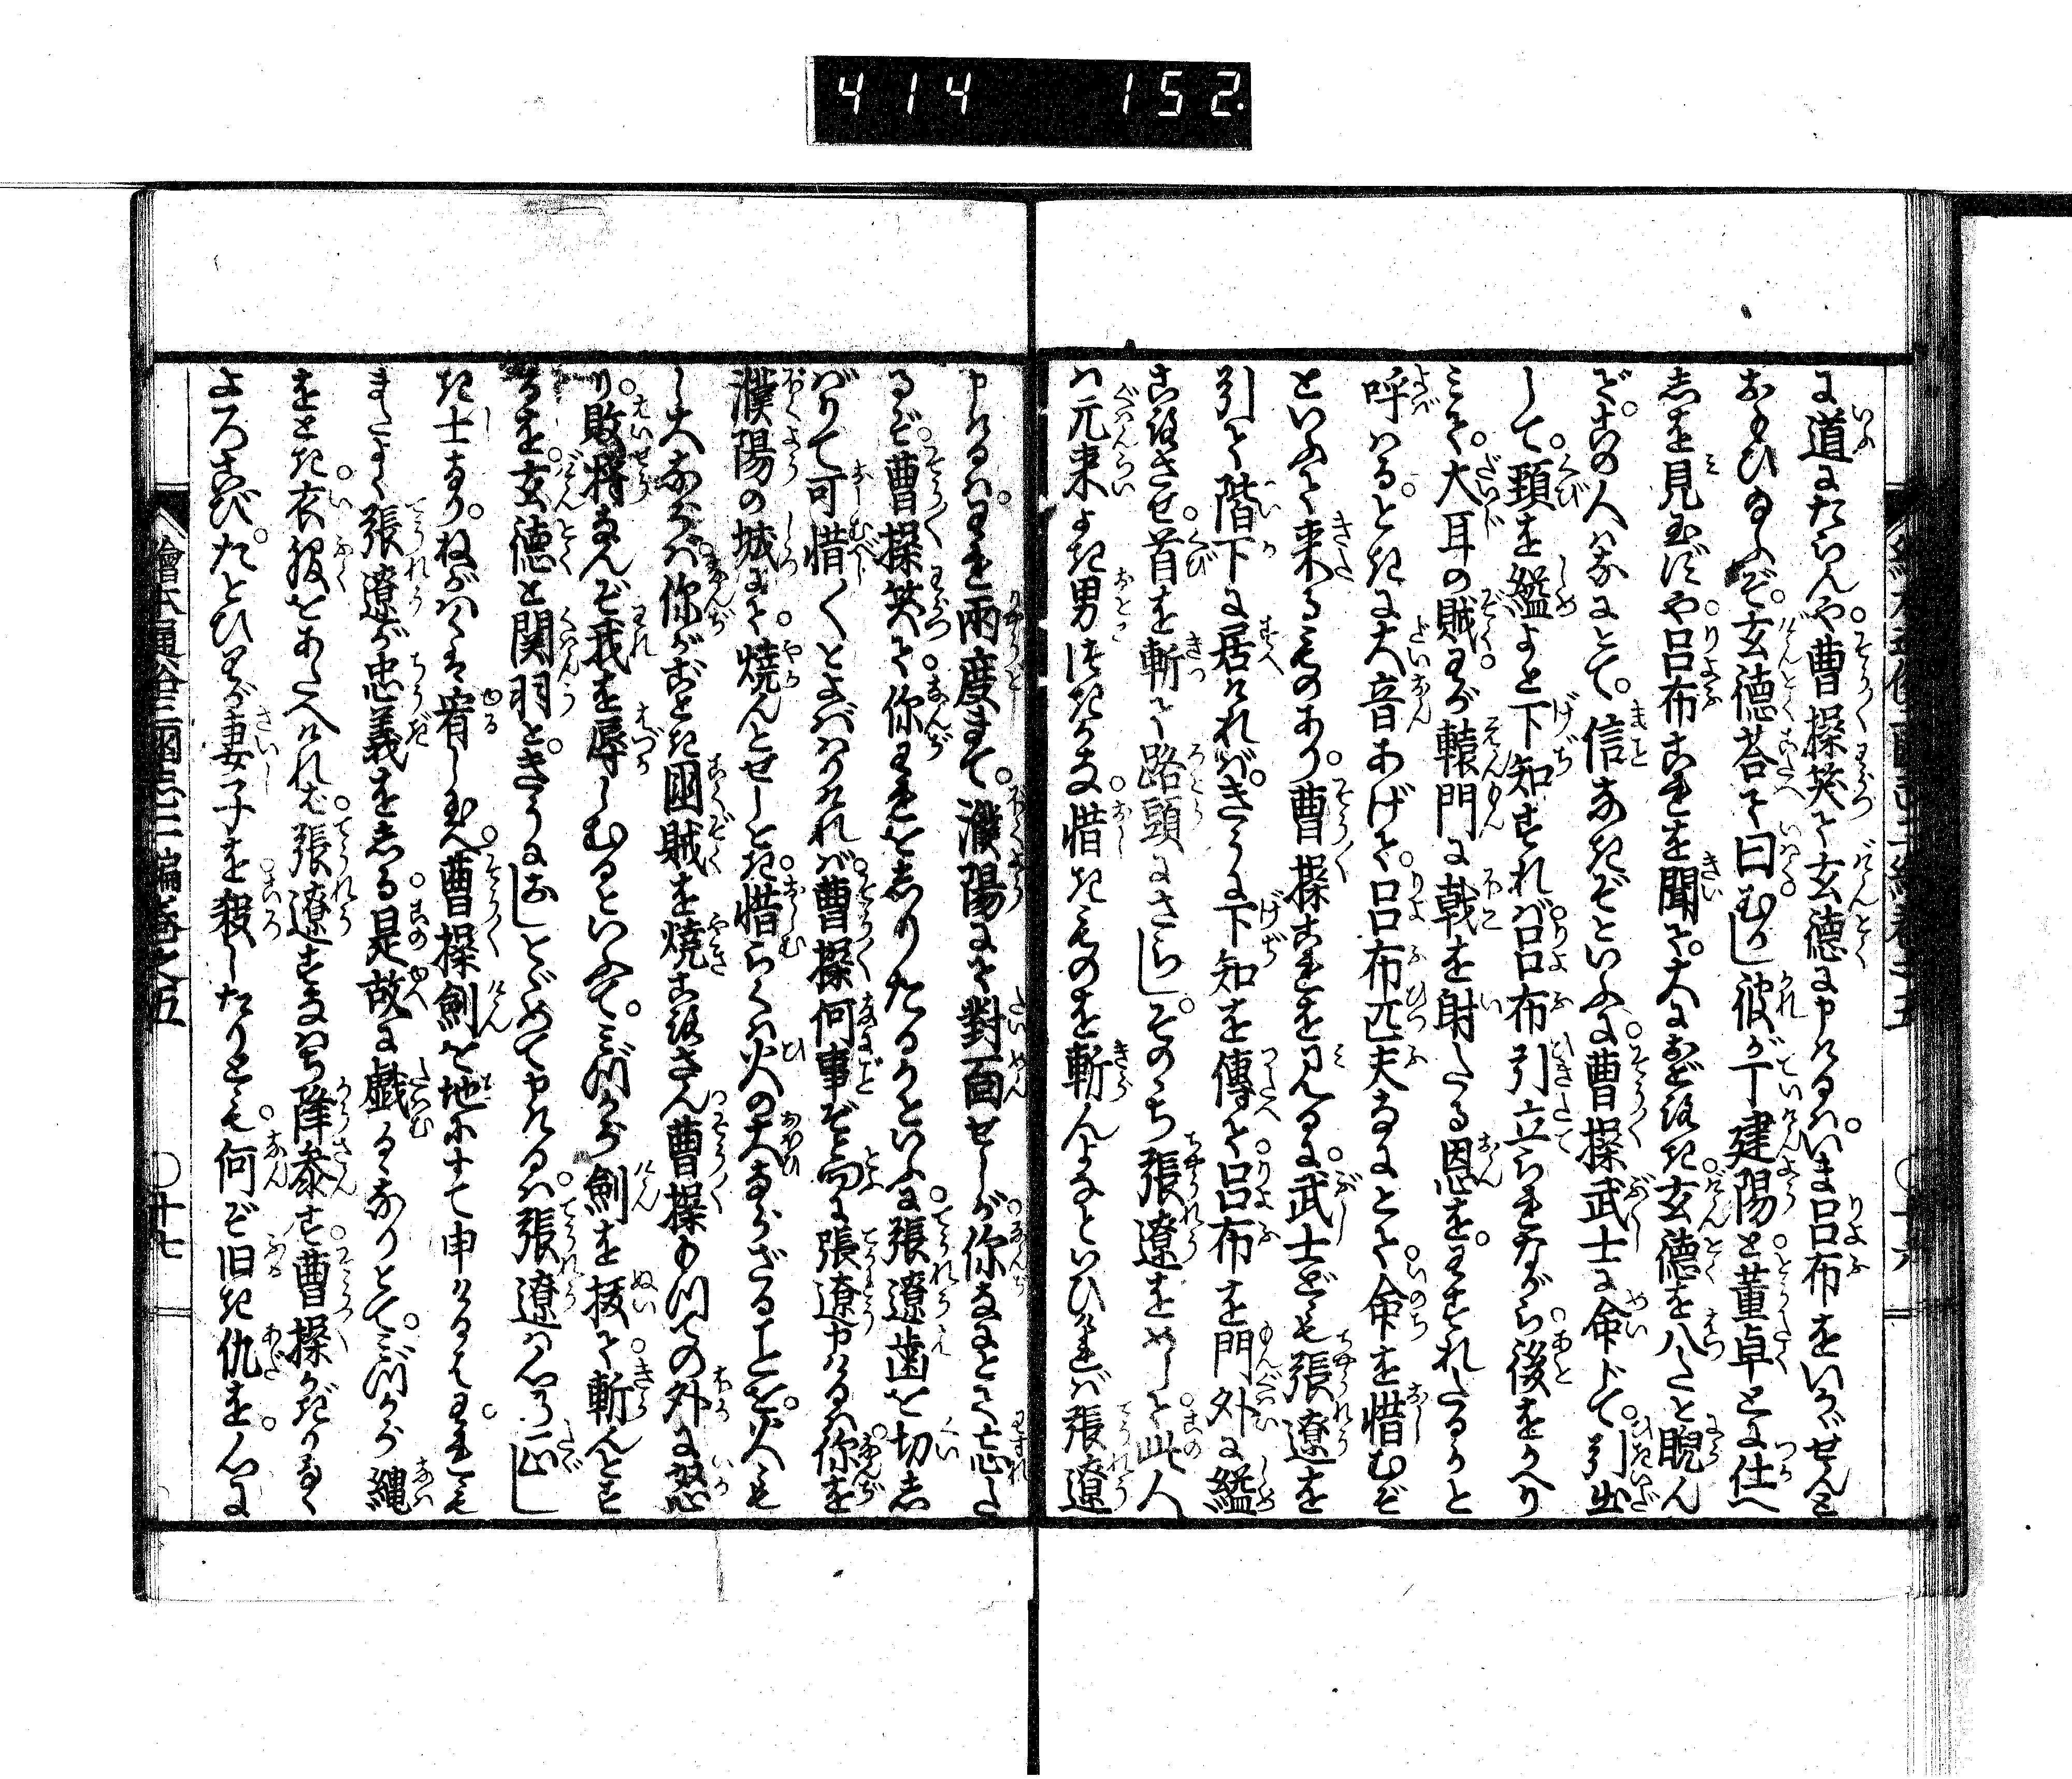 414 152
に道にたらんや曹操笑て玄徳に申けるハいま呂布をいかゞせんと
おもひ給ふぞ玄徳荅て曰むかし彼が丁建陽と董卓とに仕へ
しを見玉ずや呂布これを聞て大におどろき玄徳を八たと睨ん
でこの人ハなにとて信なきぞといふに曹操武士に命じて引出
して頚を縊よと下知すれバ呂布引立られながら後をかへり
みて大耳の賊わが轅門に戟を射たる恩をわすれたるかと
呼ハるときに大音あげて呂布匹夫なにとて命を惜むぞ
といふて来るものあり曹操これを見るに武士ども張遼を
引て階下に居けれバきうに下知を傳て呂布を門外に縊
ころさせ首を斬て路頭にさらしそのゝち張遼をめして此人
ハ元来よき男なりきな惜きものを斬んよなといひけれバ張遼
申けるハわれ兩度まで濮陽にて對面せしが你なにとて忘た
るぞ曹操笑て你われをしりたるかといふに張遼歯を切し
ばりて可惜くとよバハりけれバ曹操何事ぞと問に張遼申けるハ你を
濮陽の城にて焼んとせしとき惜らくハ火の大ならざることを火も
し大ならバ你がごとき國賊を焼ころさん曹操もつての外に怒
り敗将なんぞ我を辱しむるといふてミづから劍を抜て斬んとす
るを玄徳と関羽ときうにおしとゞめて申けるハ張遼ハ心の正し
き士なりねがハくハ宥し玉へ曹操劍を地にすて申けるはわれも
またよく張遼が忠義をしる是故に戯るゝなりとてミづから縄
をとき衣服をあたへけれバ張遼すなハち降参す曹操かぎりなく
よろこびたとひわが妻子を殺したりとも何ぞ旧き仇を心に
繪本通俗三國志二編巻之五
十七